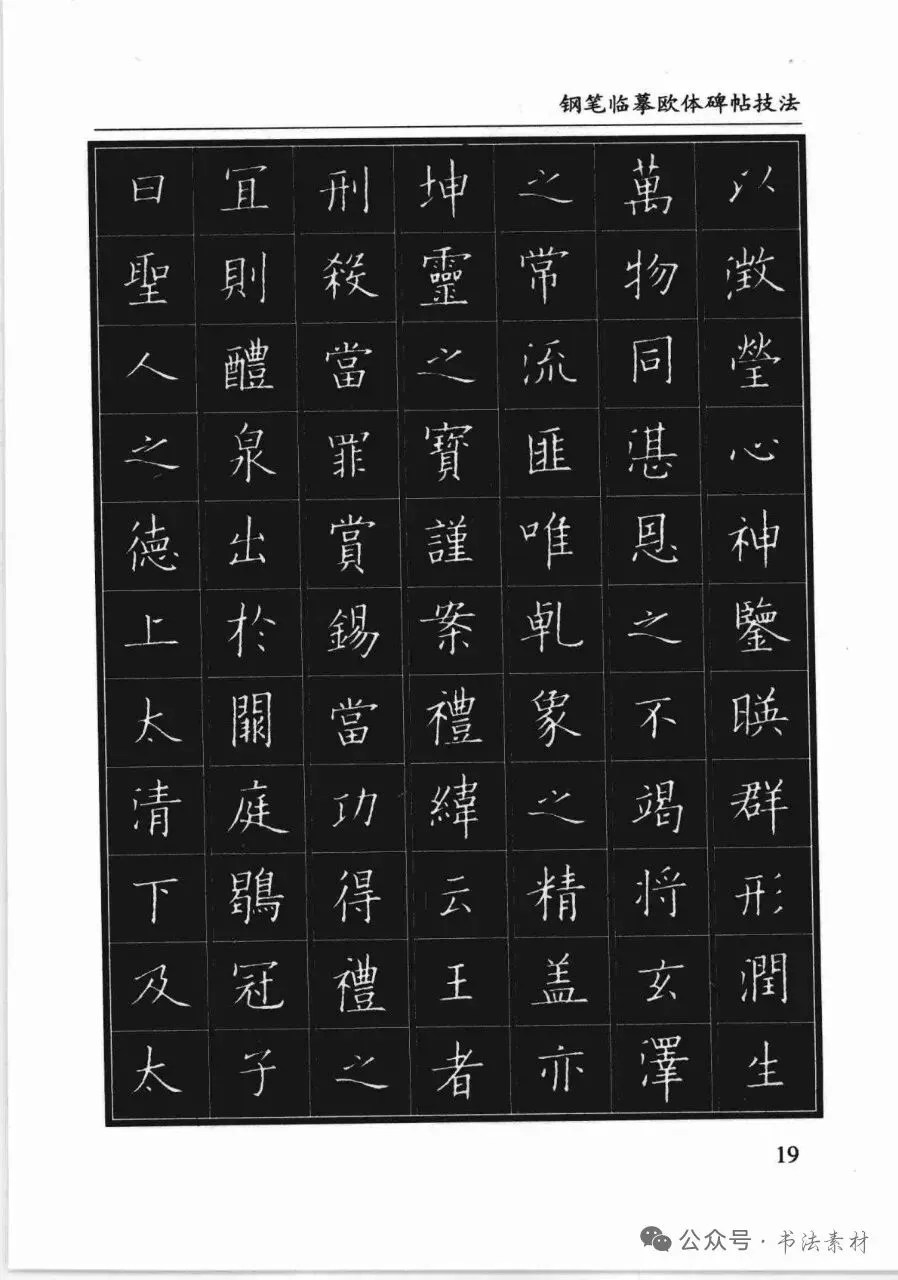 钢笔临摹欧体碑帖技法
以澂瑩心神鑒暎群形潤生
萬物同湛恩之不竭将玄澤
之常流匪唯乹象之精盖亦
坤靈之寶謹案禮緯云王者
刑殺當罪賞錫當功得禮之
冝則醴泉出於闕庭鶡冠子
曰聖人之德上太清下及太
19
公众号·书法素材